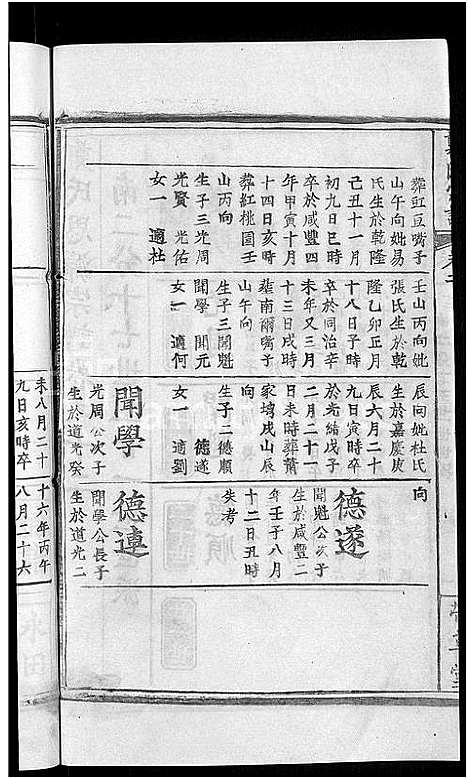 葬豇豆嘴子
山午向妣易
氏生於乾隆
己丑十一月
初九日巳時
卒於咸豐四
年甲寅十月
十四日亥時
葬紅桃園壬
山丙向
生子三光周
光賢 光佑
女一 適杜
壬山丙向妣
張氏生於乾
隆乙卯正月
十八日子時
卒於同治辛
未年又三月
十三日戌時
葬南爾嘴子
山午向
生子三聞魁
聞學 聞元
女一 適何
辰向妣杜氏
生於嘉慶庚
辰六月二十
九日寅時卒
於光緒戊子
二月二十二
日未時葬蔡
家塆戌山辰
向
生子二德順
德遂
女一 適劉
聞學
光周公次子
生於道光癸
向
德遂
聞魁公次子
生於咸豐二
年壬子八月
十二日丑時
失考
德連
聞學公長子
生於道光二
未八月二十
九日亥時卒
十六年丙午
八月二十六